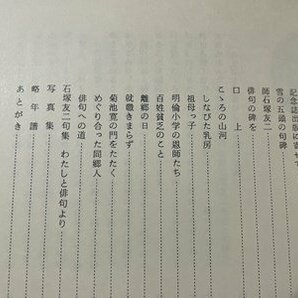 記念誌出版に寄せて
雪の五頭の句碑
師石塚友二
俳句の碑を
口上
こゝろの山河
しなびた乳房
祖母っ子
明倫小学の恩師たち
百姓貧乏のこと
離郷の日
就職きまらず
菊池寛の門をたたく
めぐり合った同郷人
俳句への道
石塚友二句集 わたしと俳句より
写真集
略年譜
あとがき